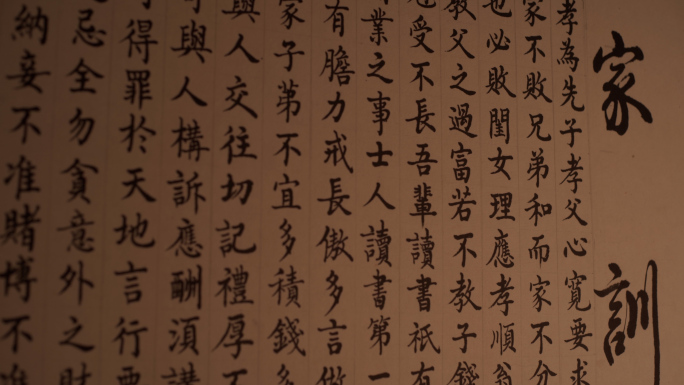 家訓
孝為先子孝父心寬要求
家不敗兄弟和而家不分
也必敗閨女理應孝順翁
教父之過富若不教子錢
也受不長吾輩讀書祇有
業之事士人讀書第一
有膽力戒長傲多言做
家子弟不宜多積錢多
與人交往切記禮厚不
與人構訴應酬須講
得罪於天地言行要
忌全勿貪意外之財
納妾不准賭博不准